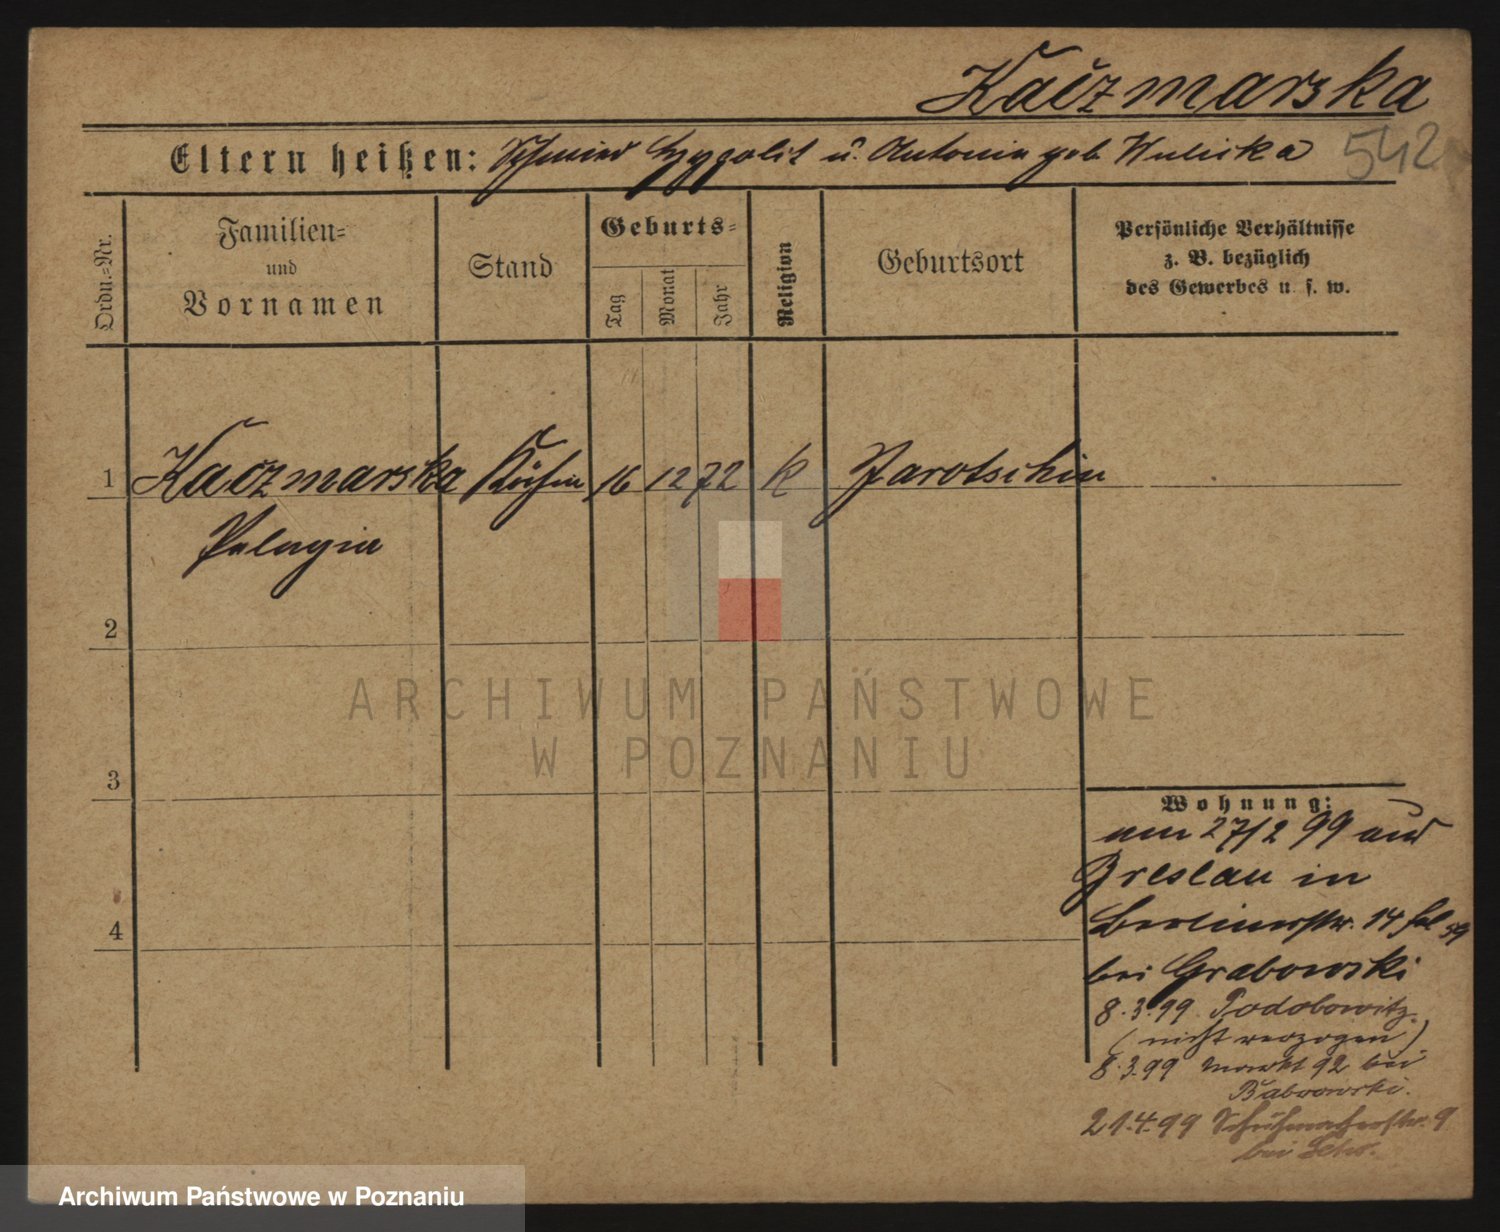 Kaczmarska
542
Eltern heißen: Schmied Hypolit u. Antonie geb.
Ordn.=Nr.
Familien=
und
Vornamen
Stand
Geburts=
Tag
Monat
Jahr
Religion
Geburtsort
Persönliche Verhältnisse
z. B. bezüglich
des Gewerbes u. s. w.
1 Kaczmarska Köchin 16 12 72 k Jarotschin
Pelagia
2
3
4
Wohnung:
am 27/2 99 aus
Breslau in
Berlinerstr. 14
bei Grabowski
8.3.99 Podobowitz
(nicht verzogen)
8.3.99 Markt 92 bei
Babrowski.
21.4.99 Schuhmacherstr. 9
bei
ARCHIWUM PAŃSTWOWE
W POZNANIU
Archiwum Państwowe w Poznaniu